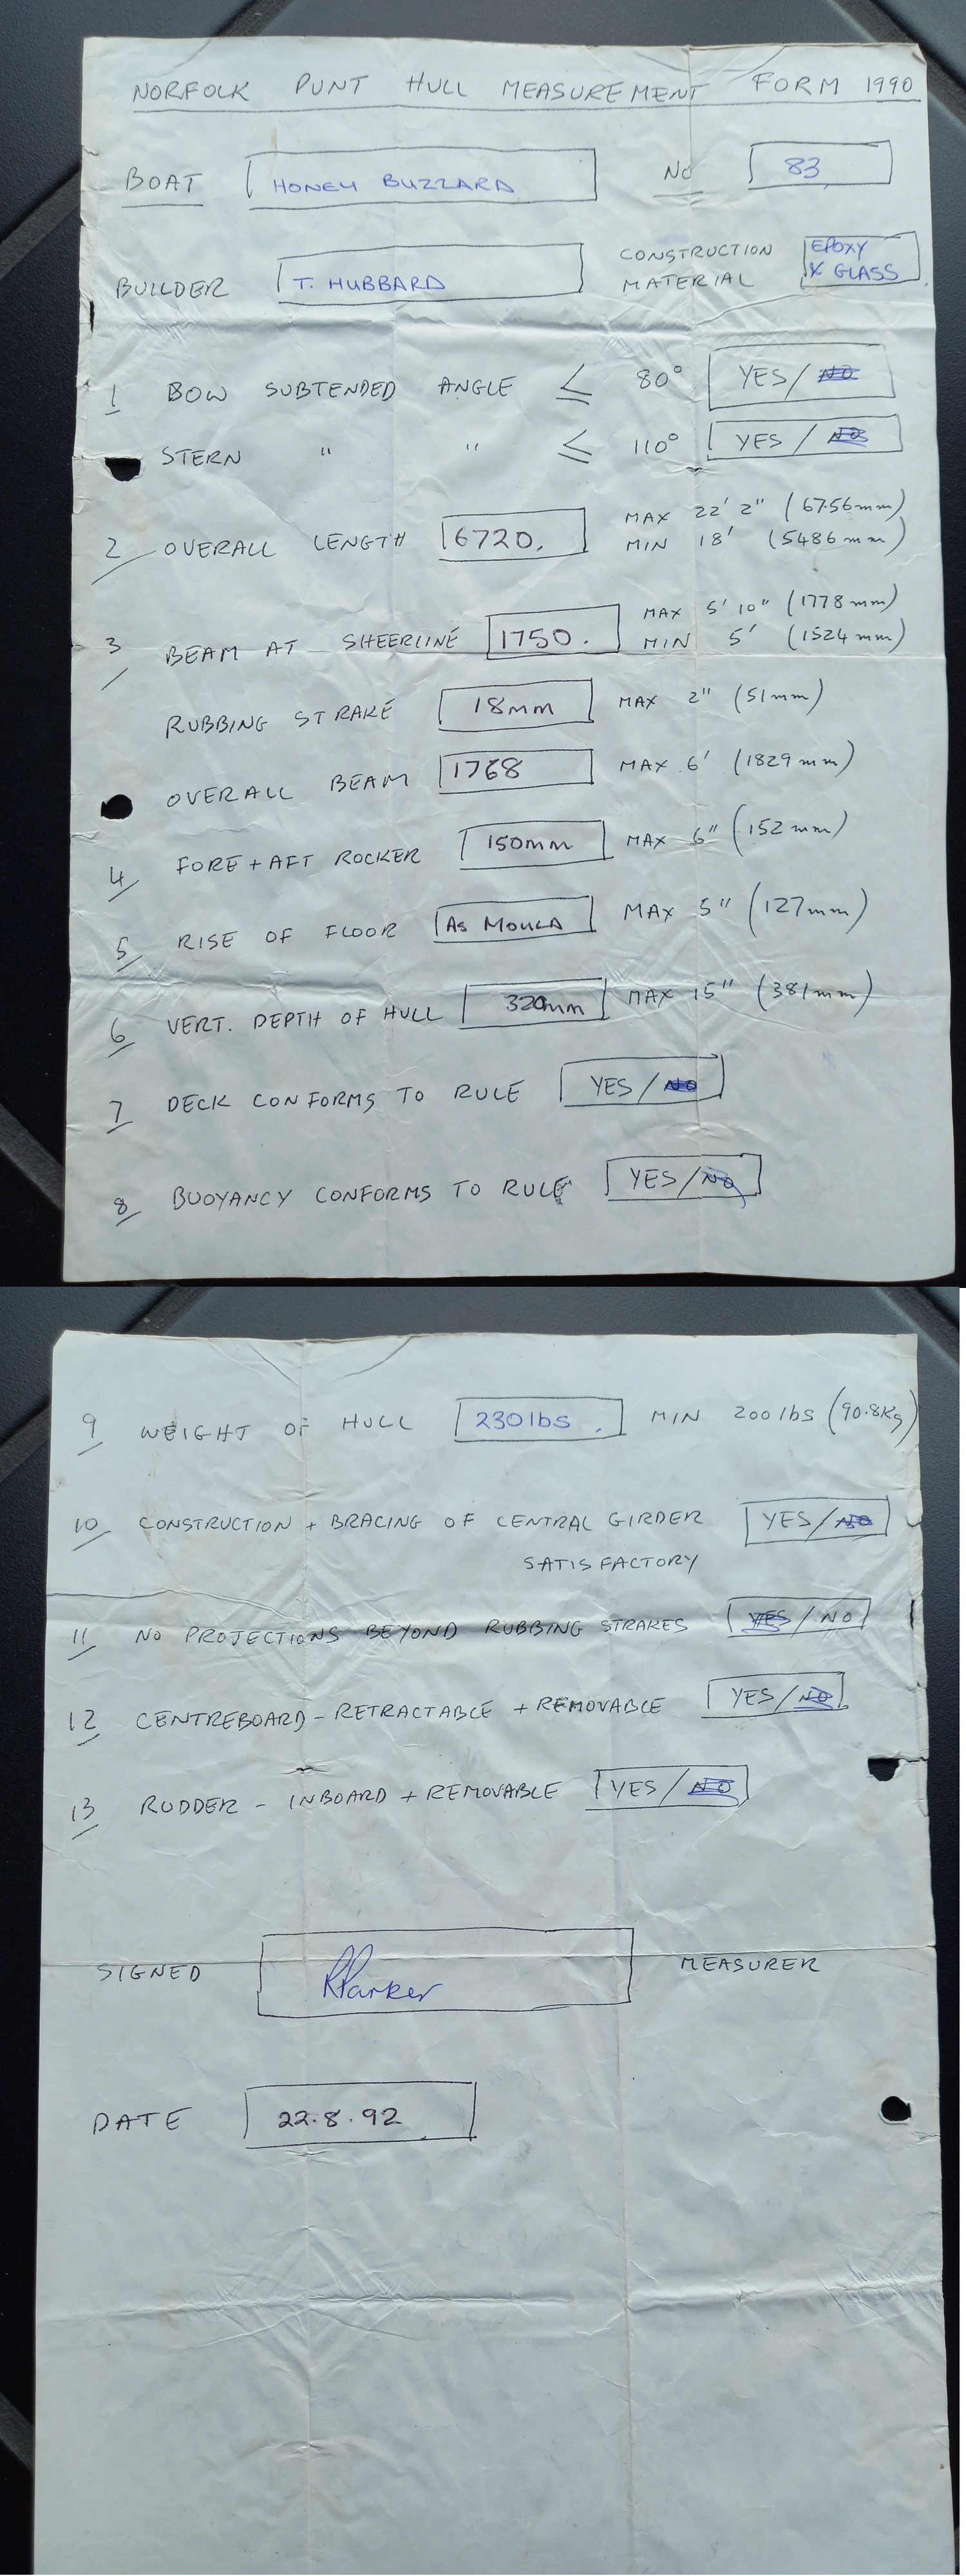 NORFOLK PUNT HULL MEASUREMENT FORM 1990
BOAT HONEY BUZZARD No 83
BUILDER T. HUBBARD CONSTRUCTION MATERIAL EPOXY & GLASS
1 BOW SUBTENDED ANGLE ≤ 80° YES/NO
STERN " " ≤ 110° YES/NO
2 OVERALL LENGTH 6720. MAX 22' 2" (6756mm)
MIN 18' (5486mm)
3 BEAM AT SHEERLINE 1750. MAX 5' 10" (1778mm)
MIN 5' (1524mm)
RUBBING STRAKE 18mm MAX 2" (51mm)
OVERALL BEAM 1768 MAX 6' (1829mm)
4 FORE + AFT ROCKER 150mm MAX 6" (152mm)
5 RISE OF FLOOR AS MOULD MAX 5" (127mm)
6 VERT. DEPTH OF HULL 320mm MAX 15" (381mm)
7 DECK CONFORMS TO RULE YES/NO
8 BUOYANCY CONFORMS TO RULE YES/NO
9 WEIGHT OF HULL 230lbs. MIN 200lbs (90.8Kg)
10 CONSTRUCTION + BRACING OF CENTRAL GIRDER YES/NO
SATISFACTORY
11 NO PROJECTIONS BEYOND RUBBING STRAKES YES/NO
12 CENTREBOARD - RETRACTABLE + REMOVABLE YES/NO
13 RUDDER - INBOARD + REMOVABLE YES/NO
SIGNED RParker MEASURER
DATE 22.8.92